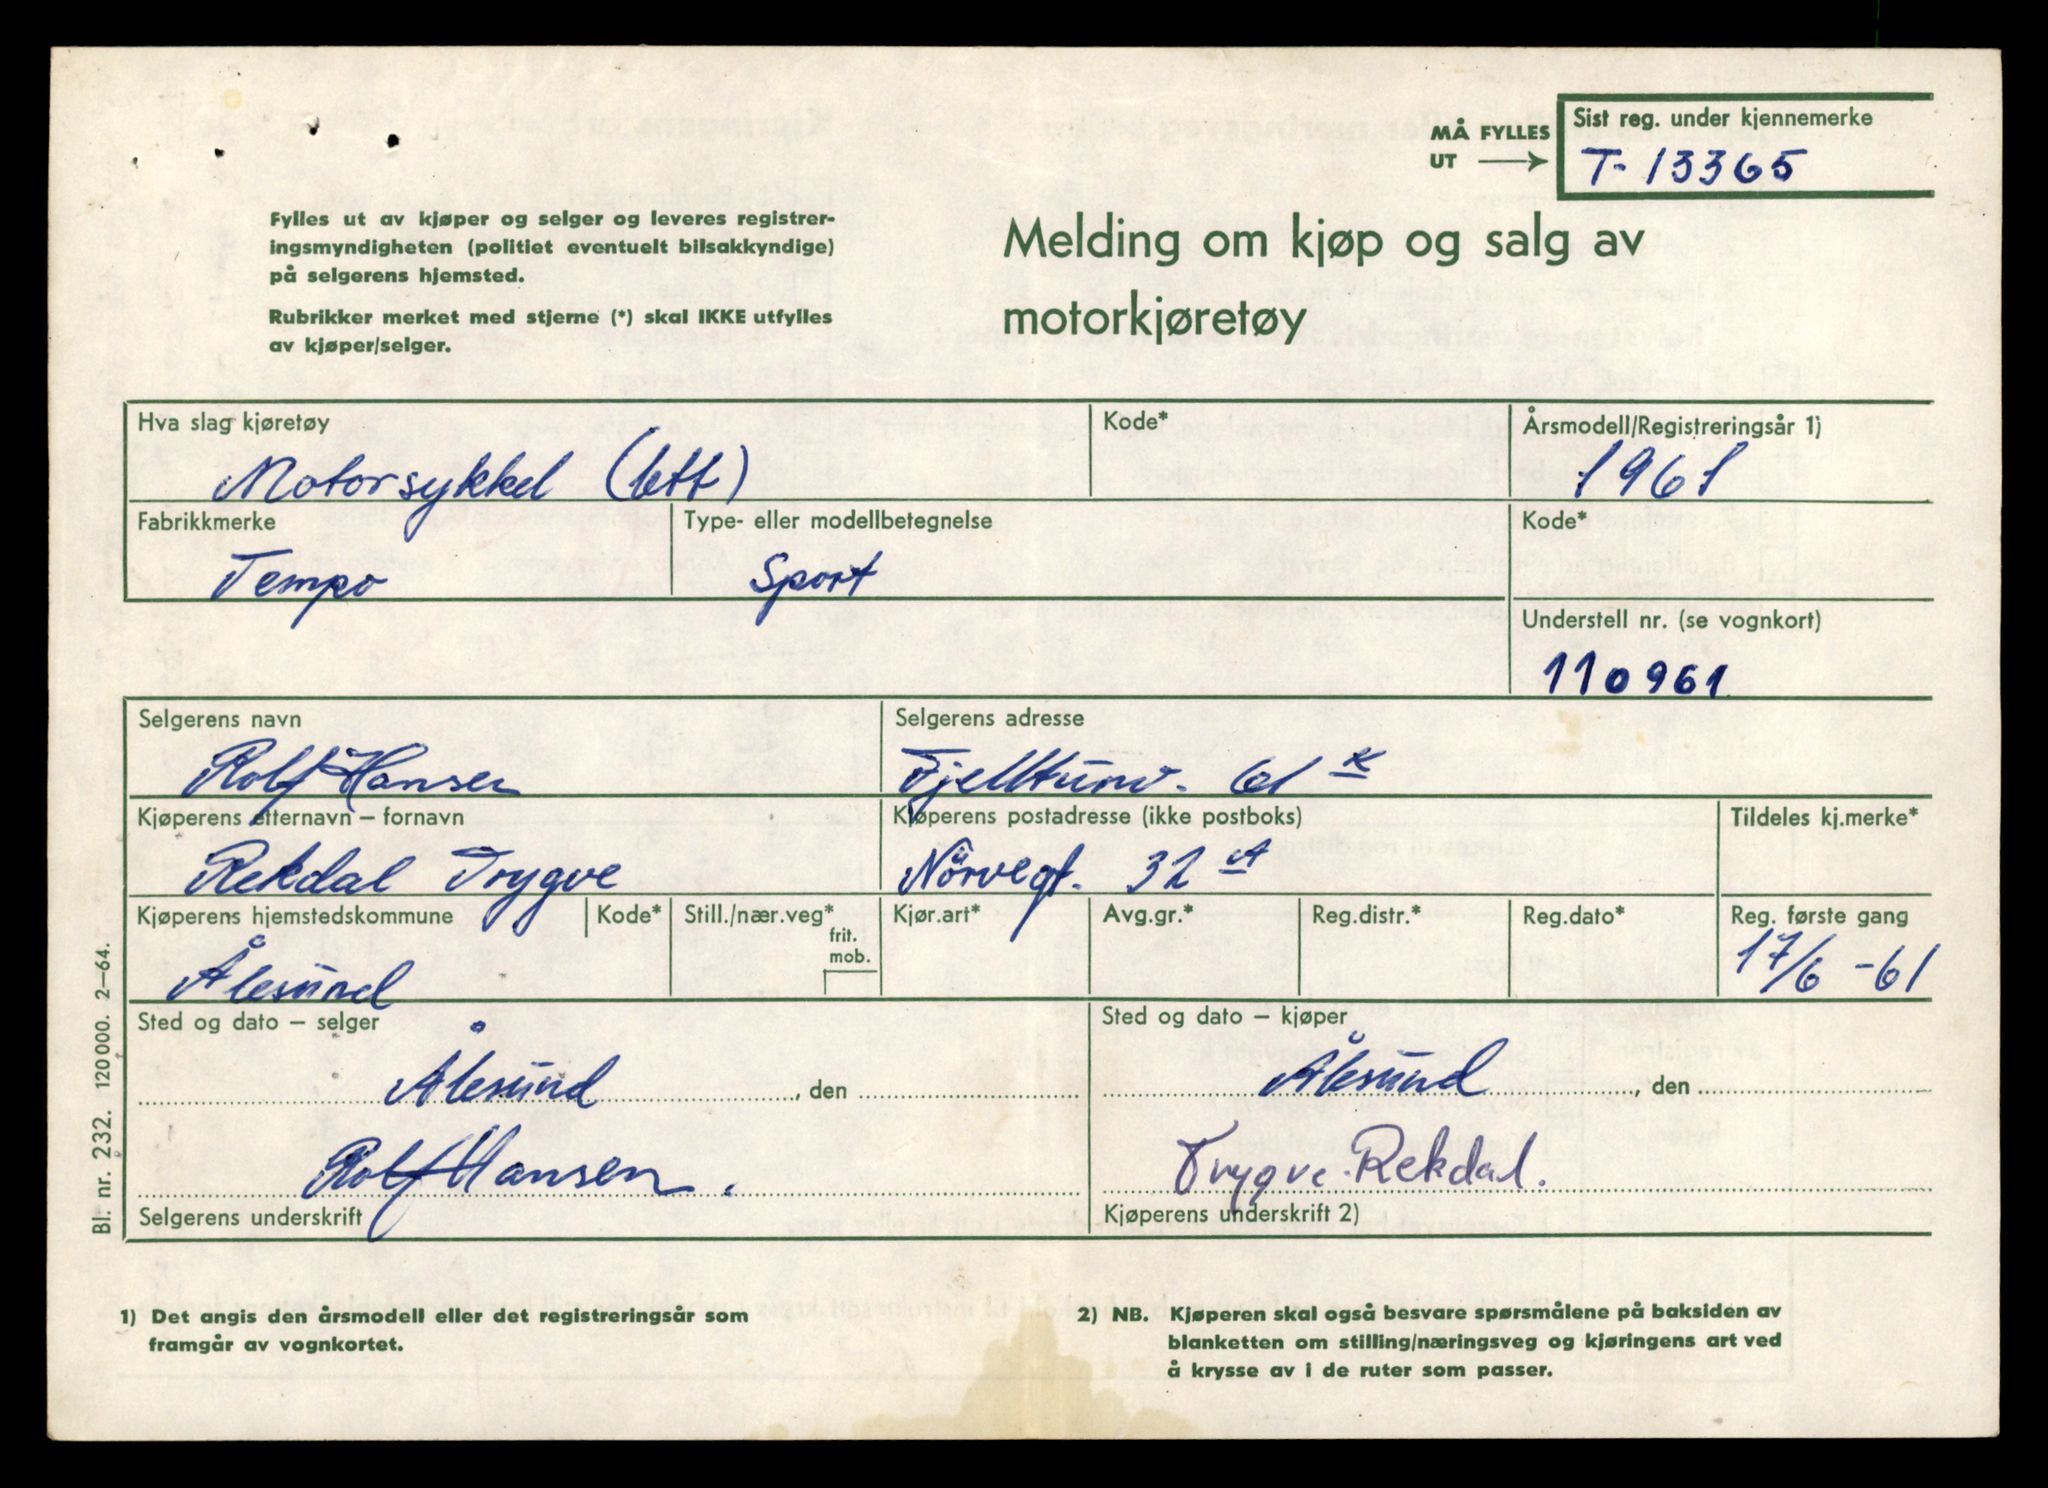 MÅ FYLLES
UT
Sist reg. under kjennemerke
T- 13365
Fylles ut av kjøper og selger og leveres registrer-
ingsmyndigheten (politiet eventuelt bilsakkyndige)
på selgerens hjemsted.
Rubrikker merket med stjerne (*) skal IKKE utfylles
av kjøper/selger.
Melding om kjøp og salg av
motorkjøretøy
Hva slag kjøretøy
Motorsykkel (lett)
Kode*
Årsmodell/Registreringsår 1)
1961
Fabrikkmerke
Tempo
Type- eller modellbetegnelse
Sport
Kode*
Understell nr. (se vognkort)
110961
Selgerens navn
Rolf Hansen
Selgerens adresse
Fjelltunv. 61 K
Kjøperens etternavn – fornavn
Rekdal Trygve
Kjøperens postadresse (ikke postboks)
Nörvegt. 32 A
Tildeles kj.merke*
Kjøperens hjemstedskommune
Ålesund
Kode*
Still./nær.veg*
frit.
mob.
Kjør.art*
Avg.gr.*
Reg.distr.*
Reg.dato*
Reg. første gang
17/6 -61
Sted og dato – selger
Ålesund , den
Rolf Hansen.
Selgerens underskrift
Sted og dato – kjøper
Ålesund , den
Trygve Rekdal.
Kjøperens underskrift 2)
Bl. nr. 232. 120 000. 2–64.
1) Det angis den årsmodell eller det registreringsår som
framgår av vognkortet.
2) NB. Kjøperen skal også besvare spørsmålene på baksiden av
blanketten om stilling/næringsveg og kjøringens art ved
å krysse av i de ruter som passer.